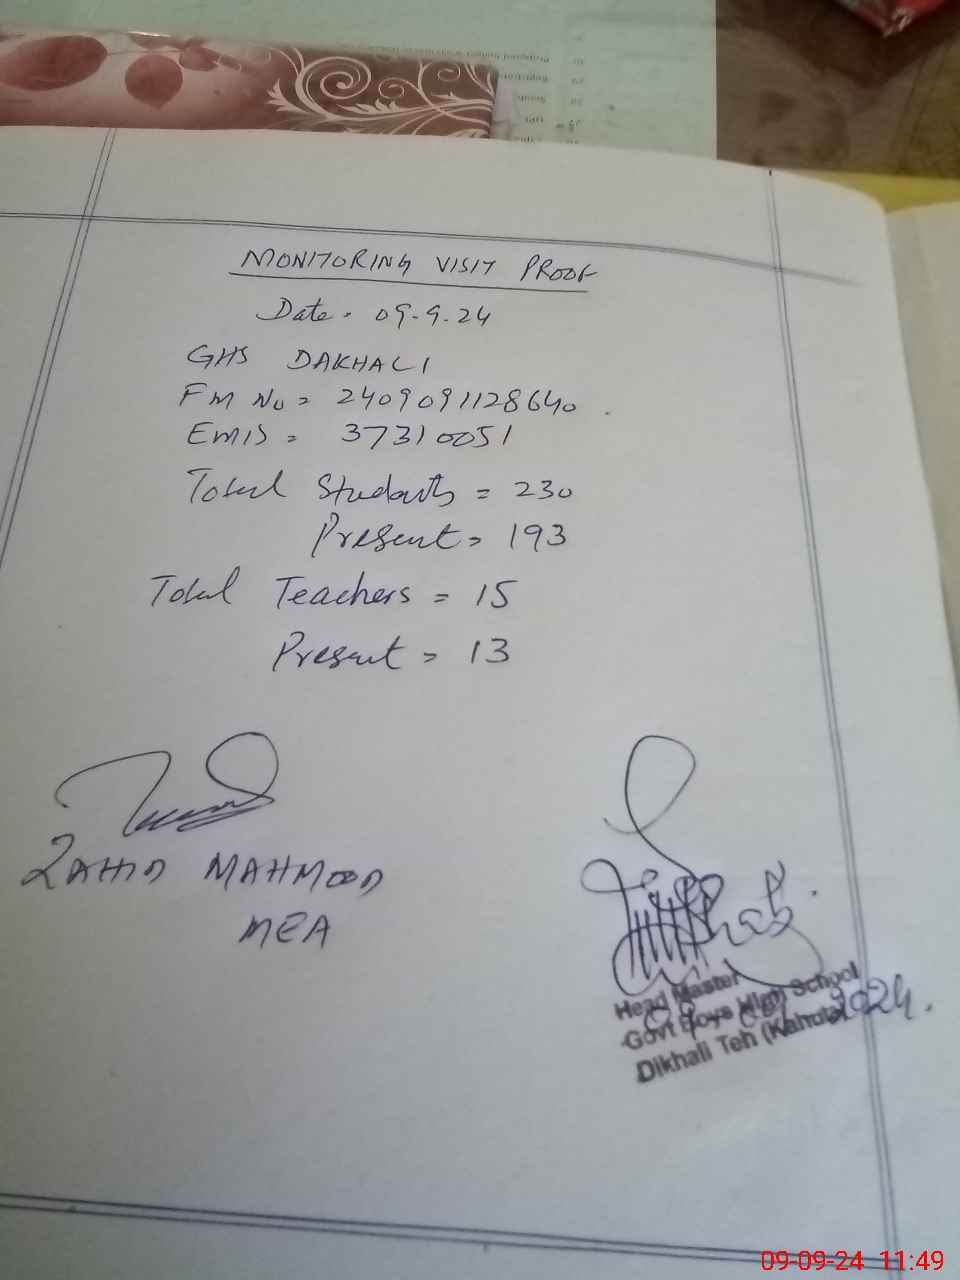 MONITORING VISIT PROOF
Date. 09.9.24
GHS DAKHALI
FM No = 2409091128640.
EMIS = 37310051
Total Students = 230
Present = 193
Total Teachers = 15
Present = 13
ZAHID MAHMOOD
MEA
Head Master
Govt Boys High School
2024.
Dikhali Teh (Kahuta)
09-09-24 11:49